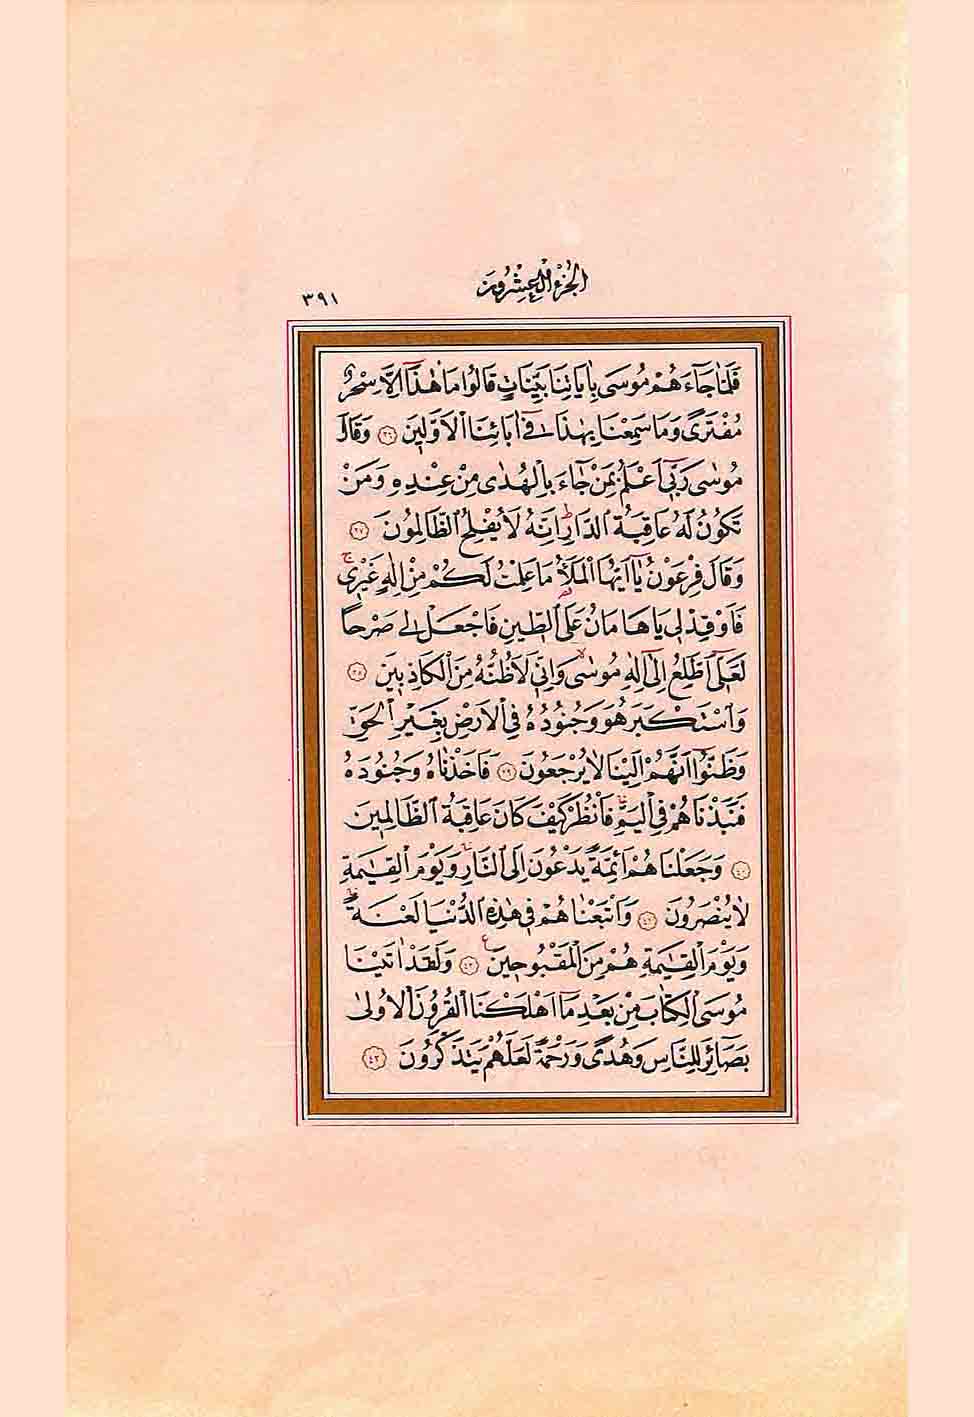 الجزء العشرون
٣٩١
فَلَمَّا جَآءَهُمْ مُوسٰى بِاٰيَاتِنَا بَيِّنَاتٍ قَالُوا مَا هٰذَٓا اِلَّا سِحْرٌ
مُفْتَرًى وَمَا سَمِعْنَا بِهٰذَا ف۪ٓي اٰبَٓائِنَا الْاَوَّل۪ينَ ﴿٣٦﴾ وَقَالَ
مُوسٰى رَبّ۪ٓي اَعْلَمُ بِمَنْ جَٓاءَ بِالْهُدٰى مِنْ عِنْدِه۪ وَمَنْ
تَكُونُ لَهُ عَاقِبَةُ الدَّارِۜ اِنَّهُ لَا يُفْلِحُ الظَّالِمُونَ ﴿٣٧﴾
وَقَالَ فِرْعَوْنُ يَٓا اَيُّهَا الْمَلَأُ مَا عَلِمْتُ لَكُمْ مِنْ اِلٰهٍ غَيْر۪يۚ
فَاَوْقِدْ ل۪ي يَا هَامَانُ عَلَى الطّ۪ينِ فَاجْعَلْ ل۪ي صَرْحًا
لَعَلّ۪ٓي اَطَّلِعُ اِلٰٓى اِلٰهِ مُوسٰىۙ وَاِنّ۪ي لَاَظُنُّهُ مِنَ الْكَاذِب۪ينَ ﴿٣٨﴾
وَاسْتَكْبَرَ هُوَ وَجُنُودُهُ فِي الْاَرْضِ بِغَيْرِ الْحَقِّ
وَظَنُّٓوا اَنَّهُمْ اِلَيْنَا لَا يُرْجَعُونَ ﴿٣٩﴾ فَاَخَذْنَاهُ وَجُنُودَهُ
فَنَبَذْنَاهُمْ فِي الْيَمِّۚ فَانْظُرْ كَيْفَ كَانَ عَاقِبَةُ الظَّالِم۪ينَ
﴿٤٠﴾ وَجَعَلْنَاهُمْ اَئِمَّةً يَدْعُونَ اِلَى النَّارِۚ وَيَوْمَ الْقِيٰمَةِ
لَا يُنْصَرُونَ ﴿٤١﴾ وَاَتْبَعْنَاهُمْ ف۪ي هٰذِهِ الدُّنْيَا لَعْنَةًۚ
وَيَوْمَ الْقِيٰمَةِ هُمْ مِنَ الْمَقْبُوح۪ينَ ﴿٤٢﴾ وَلَقَدْ اٰتَيْنَا
مُوسَى الْكِتَابَ مِنْ بَعْدِ مَٓا اَهْلَكْنَا الْقُرُونَ الْاُولٰى
بَصَٓائِرَ لِلنَّاسِ وَهُدًى وَرَحْمَةً لَعَلَّهُمْ يَتَذَكَّرُونَ ﴿٤٣﴾